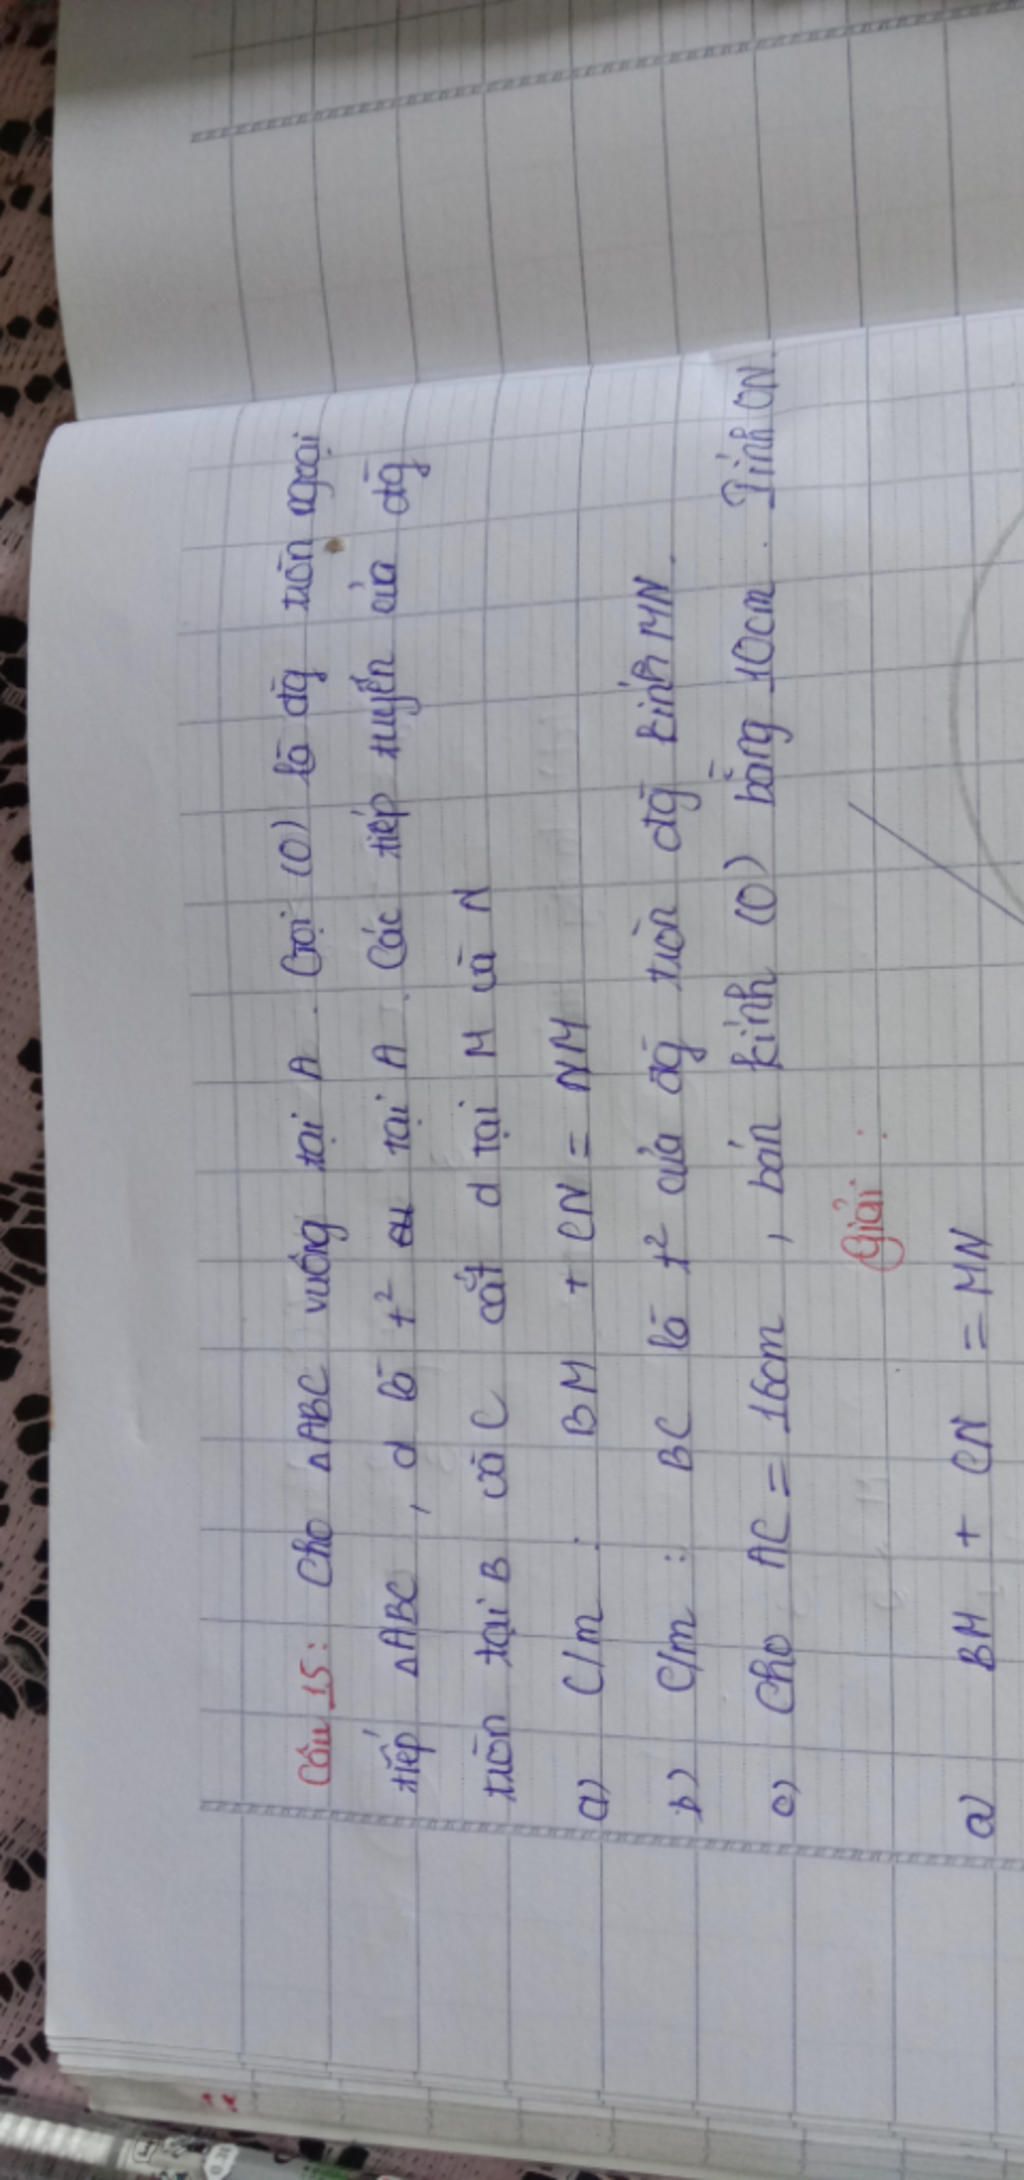 Câu 15: Cho △ABC vuông tại A. Gọi (O) là đg tròn ngoại
tiếp △ABC, d là t² tại A. Các tiếp tuyến của đg
tròn tại B và C cắt d tại M và N
a) C/m: BM + CN = NM
b) C/m: BC là t² của đg tròn đg kính MN.
c) Cho AC = 16cm, bán kính (O) bằng 10cm. Tính ON.
Giải:
a) BM + CN = MN